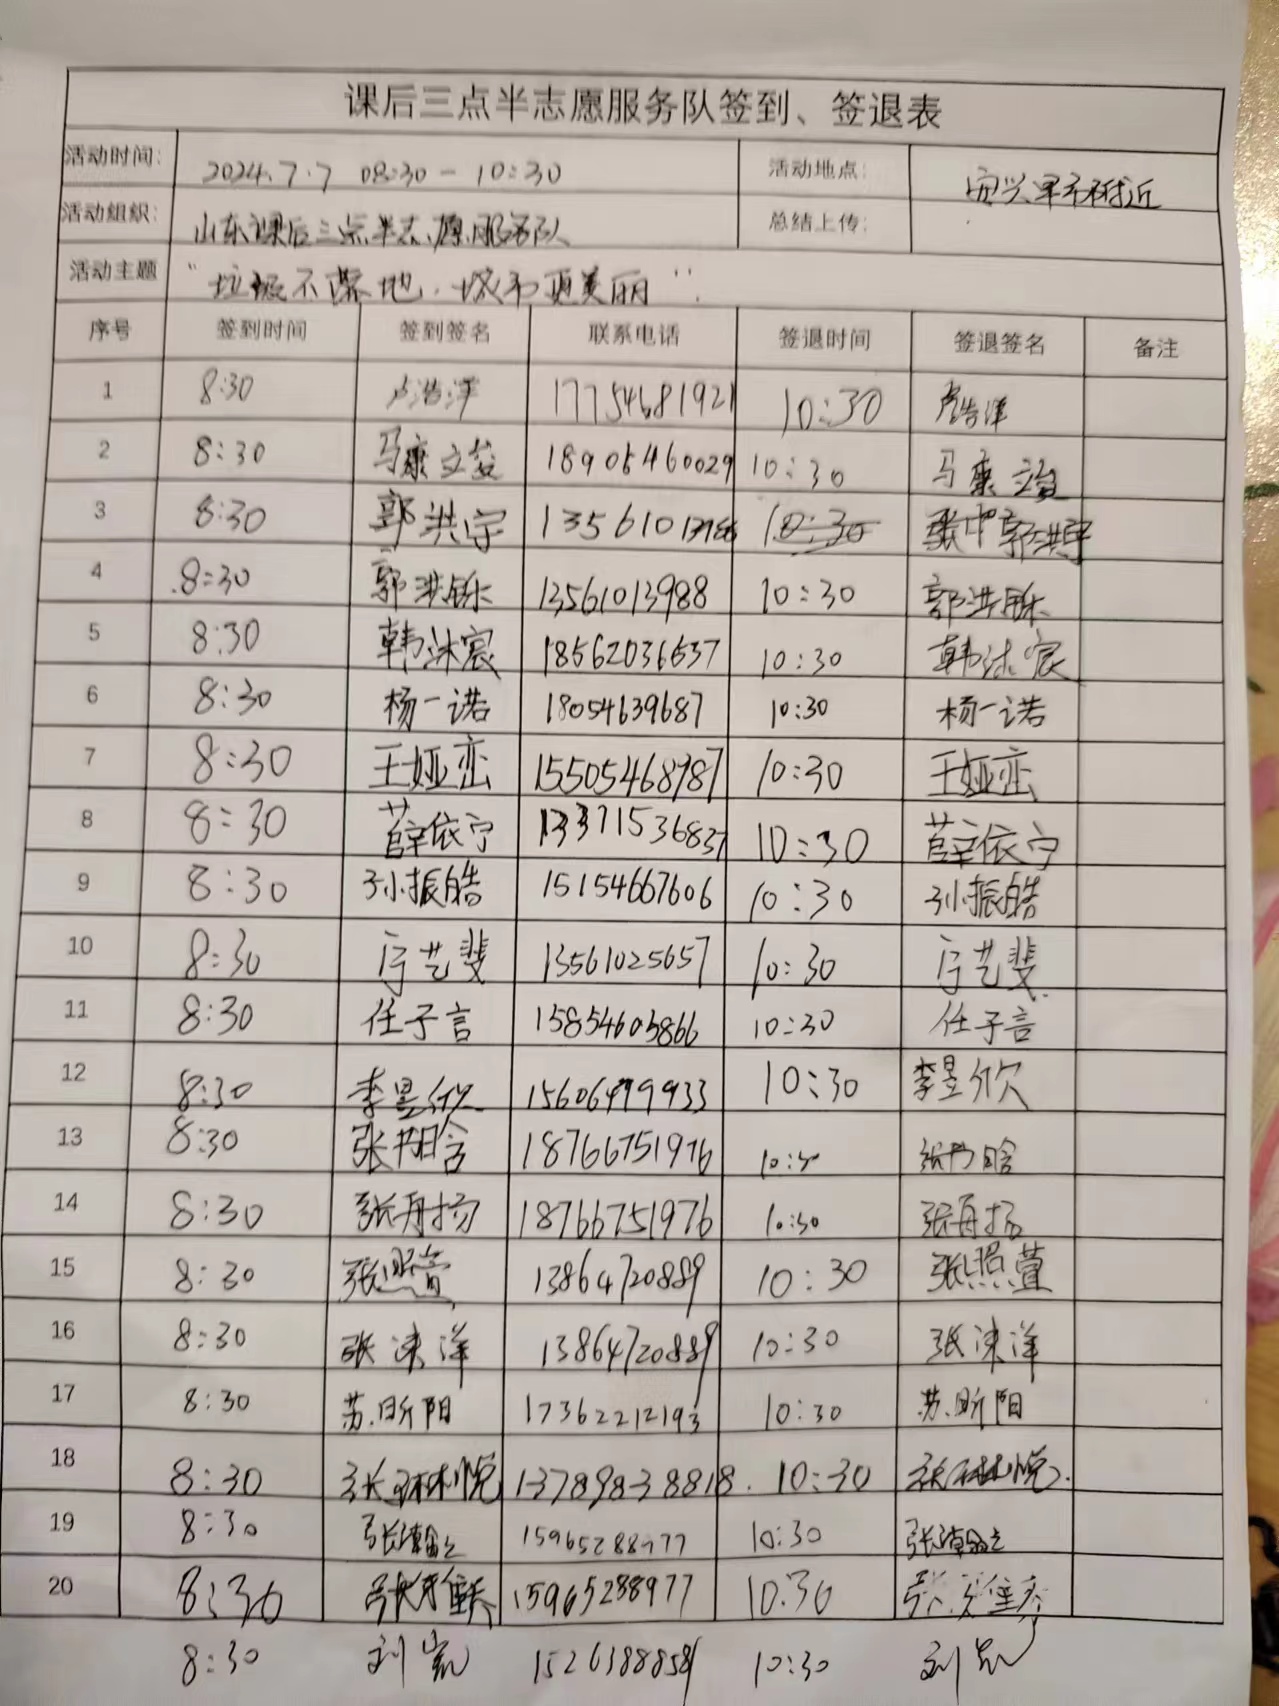 课后三点半志愿服务队签到、签退表
活动时间: 2024.7.7 08:30-10:30 活动地点:
活动组织: 山东课后三点半志愿服务队 总结上传:
活动主题 "垃圾不落地,城市更美丽"
序号 签到时间 签到签名 联系电话 签退时间 签退签名 备注
1 8:30 卢浩洋 17754681921 10:30 卢浩洋
2 8:30 马康 18905460029 10:30 马康
3 8:30 郭洪宇 10:30 郭洪宇
4 8:30 郭洪铄 13561013988 10:30 郭洪铄
5 8:30 韩沐宸 18562036637 10:30 韩沐宸
6 8:30 杨一诺 18054639687 10:30 杨一诺
7 8:30 王娅峦 15505468987 10:30 王娅峦
8 8:30 薛依宁 13371536837 10:30 薛依宁
9 8:30 孙振皓 15154667606 10:30 孙振皓
10 8:30 艺斐 13561025657 10:30 艺斐
11 8:30 任子言 15854605866 10:30 任子言
12 8:30 李昱欣 15606499933 10:30 李昱欣
13 8:30 张书晗 18766751976 张书晗
14 8:30 张再扬 18766751976 10:30 张再扬
15 8:30 张照萱 13864720889 10:30 张照萱
16 8:30 张涑洋 13864720889 10:30 张涑洋
17 8:30 苏昕阳 17362212193 10:30 苏昕阳
18 8:30 张琳悦 13789838818. 10:30 张琳悦.
19 8:30 15965288977 10:30
20 8:30 15965288977 10:30
8:30 刘 15261888581 10:30 刘